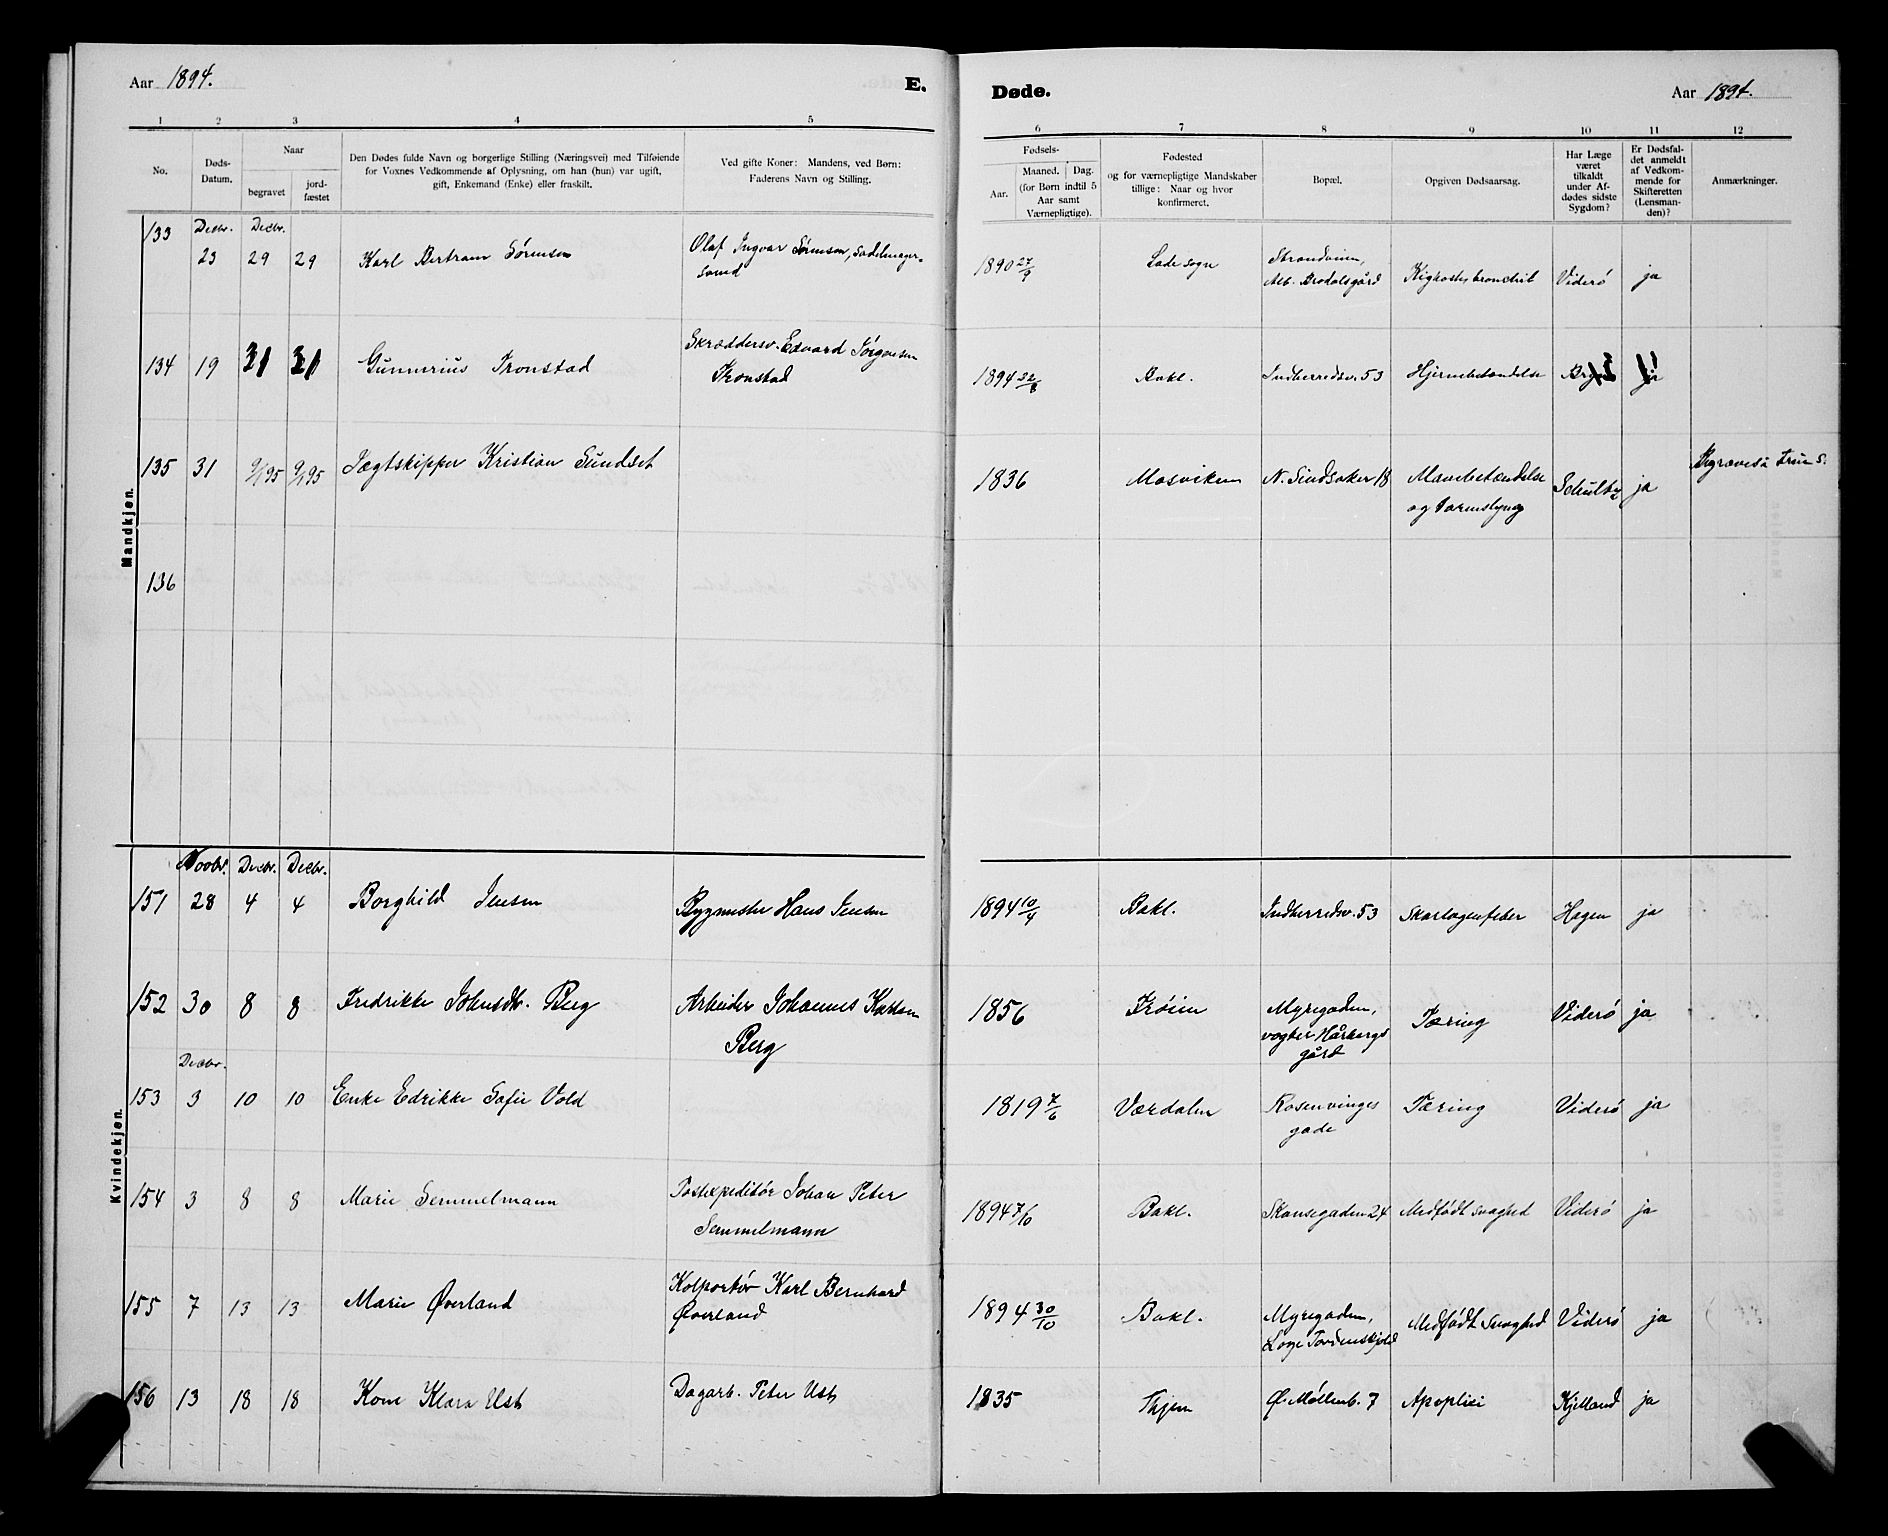 Aar 1894.
E.
Døde.
Aar 1894.
1 2 3 4 5 6 7 8 9 10 11 12
No.
Døds-
Datum.
Naar
begravet
jord-
fæstet
Den Dødes fulde Navn og borgerlige Stilling (Næringsvei) med Tilføiende
for Voxnes Vedkommende af Oplysning, om han (hun) var ugift,
gift, Enkemand (Enke) eller fraskilt.
Ved gifte Koner: Mandens, ved Børn:
Faderens Navn og Stilling.
Fødsels-
Aar.
Maaned. Dag.
(for Børn indtil 5
Aar samt
Værnepligtige).
Fødested
og for værnepligtige Mandskaber
tillige: Naar og hvor
konfirmeret.
Bopæl.
Opgiven Dødsaarsag.
Har Læge
været
tilkaldt
under Af-
dødes sidste
Sygdom?
Er Dødsfal-
det anmeldt
af Vedkom-
mende for
Skifteretten
(Lensman-
den)?
Anmærkninger.
Mandkjøn.
133 Decbr. 23 Decbr. 29 29 Karl Bertram Sørensen Olaf Ingvar Sørensen, Sadelmager-
svend
1890 27/9 Lade sogn Strandveien,
Alb. Brodalsgård Kighostebronchit Viderö ja
134 19 31 31 Gunnerius Tronstad Skræddersv. Edvard
Tronstad
1894 22/8 Bakl. Indherredsv. 53 Hjernebetændelse ja
135 31 9/1 95 9/1 95 Jægtskipper Kristian Sundset
1836 Mosviken 18 Mavebetændelse
og Tarmslyng ja Begraves i Frue S.
136
Kvindekjøn.
151 Novbr. 28 Decbr. 4 Decbr. 4 Borghild Jensen Bygmester Hans Jensen
1894 10/4 Bakl. Indherredsv. 53 Skarlagenfeber Hagen ja
152 30 8 8 Fredrikke Johnsdtr. Berg Arbeider Johannes
Berg
1856 Frøien Myregaden,
vogter
gård Tæring Viderö ja
153 Decbr. 3 10 10 Enke Edrikke Sofie Vold
1819 7/6 Værdalen Rosenvinges
gade Tæring Viderö ja
154 3 8 8 Marie Semmelmann Postexpeditör Johan Peter
Semmelmann
1894 7/10 Bakl. Skansegaden 24 Medfødt svaghed Viderö ja
155 7 13 13 Marie Øverland Kolportör Karl Bernhard
Øverland
1894 30/10 Bakl. Myregaden,
Loge Tordenskjold Medfødt Svaghed Viderö ja
156 13 18 18 Kone Klara Ust Dagarb. Peter Ust
1835 Ø. Møllenb. 7 Apoplexi Kjelland ja